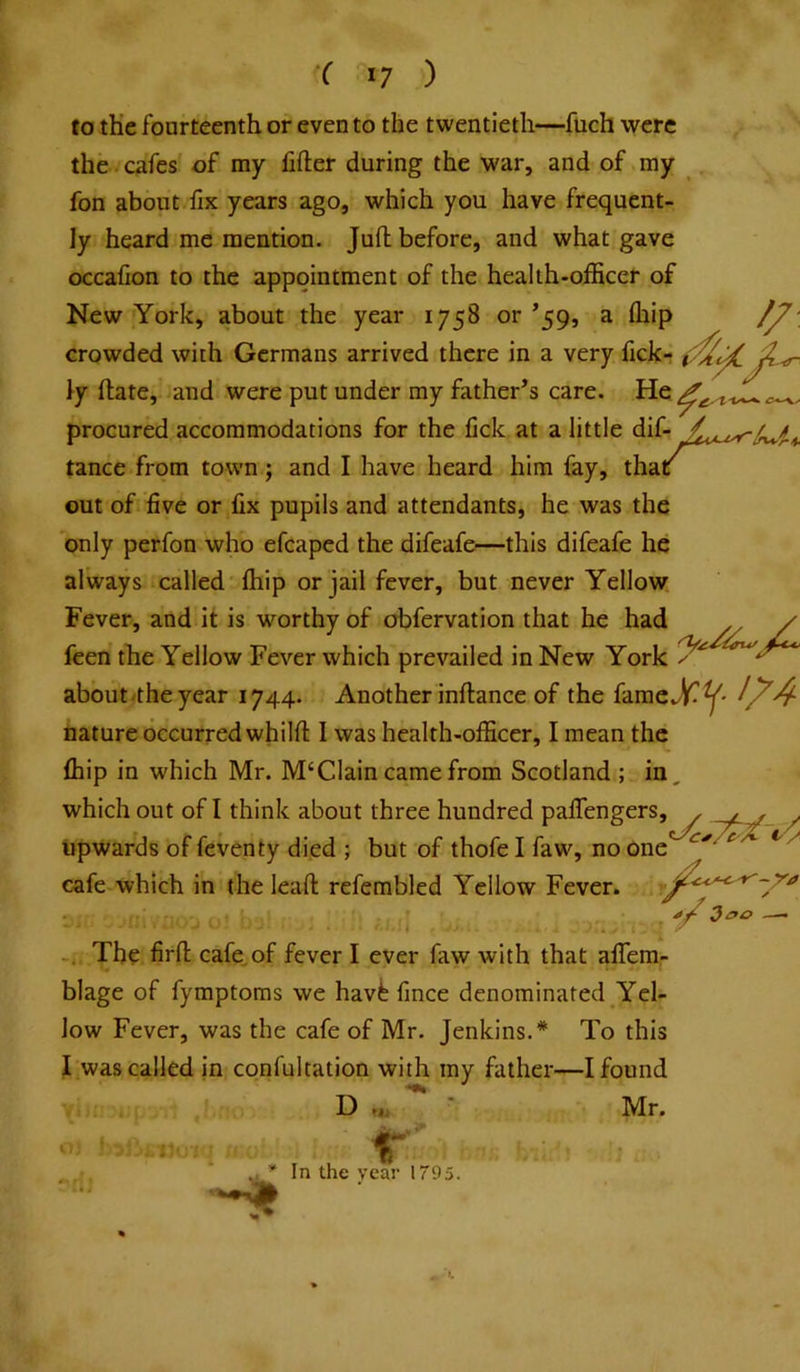 ( 17 )
to the fourteenth or even to the twentieth—ſuch were
the caſes of my ſiſter during the war, and of my
ſon about ſix years ago, which you have frequent-
ly heard me mention. Juſt before, and what gave
occaſion to the appointment of the health-officer of
New York, about the year 1758 or ’59, a ſhip
crowded with Germans arrived there in a very ſick-
ly ſtate, and were put under my father’s care. He
procured accommodations for the ſick at a little diſ-
tance from town; and I have heard him ſay, that
out of five or ſix pupils and attendants, he was the
only perſon who eſcaped the diſeaſe—this diſeaſe he
always called ſhip or jail fever, but never Yellow
Fever, and it is worthy of obſervation that he had
ſeen the Yellow Fever which prevailed in New York
about the year 1744. Another inſtance of the ſame
nature occurred whilſt I was health-officer, I mean the
ſhip in which Mr. M‘Clain came from Scotland; in
which out of I think about three hundred paſſengers,
upwards of ſeventy died; but of thoſe I ſaw, no one
caſe which in the leaſt reſembled Yellow Fever.
The firſt caſe of fever I ever ſaw with that aſſem-
blage of ſymptoms we have ſince denominated Yel-
low Fever, was the caſe of Mr. Jenkins.* To this
I was called in conſultation with my father—I found
D Mr.
* In the year 1795.
17
Yellow
N.Y. 174
300 —